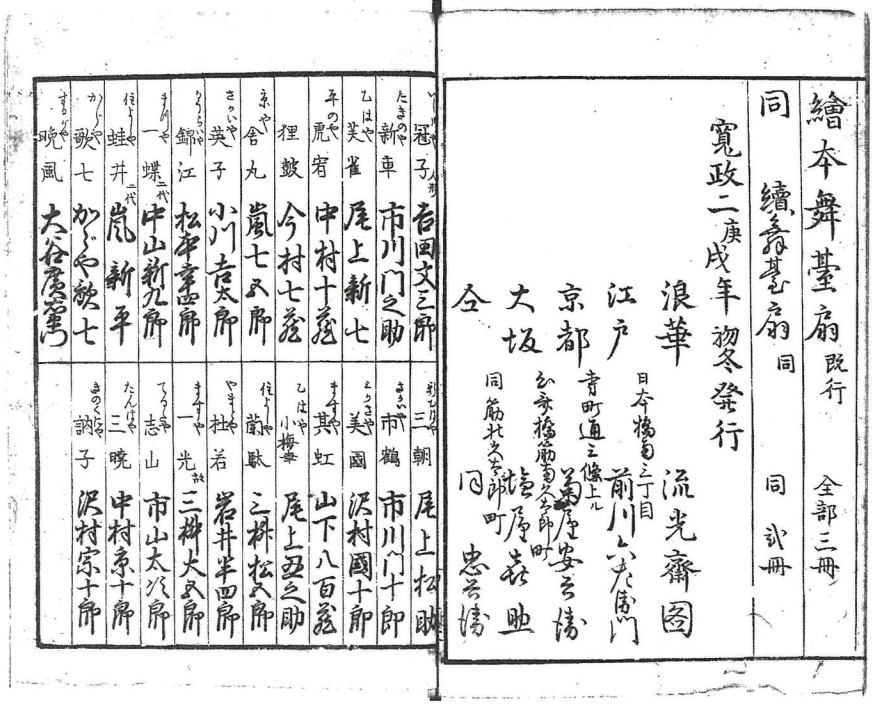 繪本舞臺扇 既行 全部三冊
同 續舞臺扇 同 同 弐冊
寛政二庚戌年初冬発行
浪華 流光齋圖
江戸 日本橋南三丁目 前川六左衛門
京都 寺町通三條上ル 菊屋安兵衛
大坂 心斎橋筋南久太郎町 塩屋喜助
仝 同筋北久太郎町 同 忠兵衛
冠子 吉田文三郎
たきのや 新車 市川門之助
乙はや 芙雀 尾上新七
平のや 虎宥 中村十蔵
狸皷 今村七蔵
京や 舎丸 嵐七五郎
さかいや 英子 小川吉太郎
かうらいや 錦江 松本幸四郎
一蝶 二代 中山新九郎
住よしや 蛙井 二代 嵐新平
かゞや 歌七 かゞや歌七
するがや 晩風 大谷廣右衛門
三朝 尾上松助
市鶴 市川門十郎
美國 沢村國十郎
其虹 山下八百蔵
乙はや 小梅 尾上丑之助
住よしや 蘭駄 三枡松五郎
やまとや 杜若 岩井半四郎
ますや 一光 故 三枡大五郎
志山 市山太次郎
たんばや 三暁 中村京十郎
きのくにや 訥子 沢村宗十郎